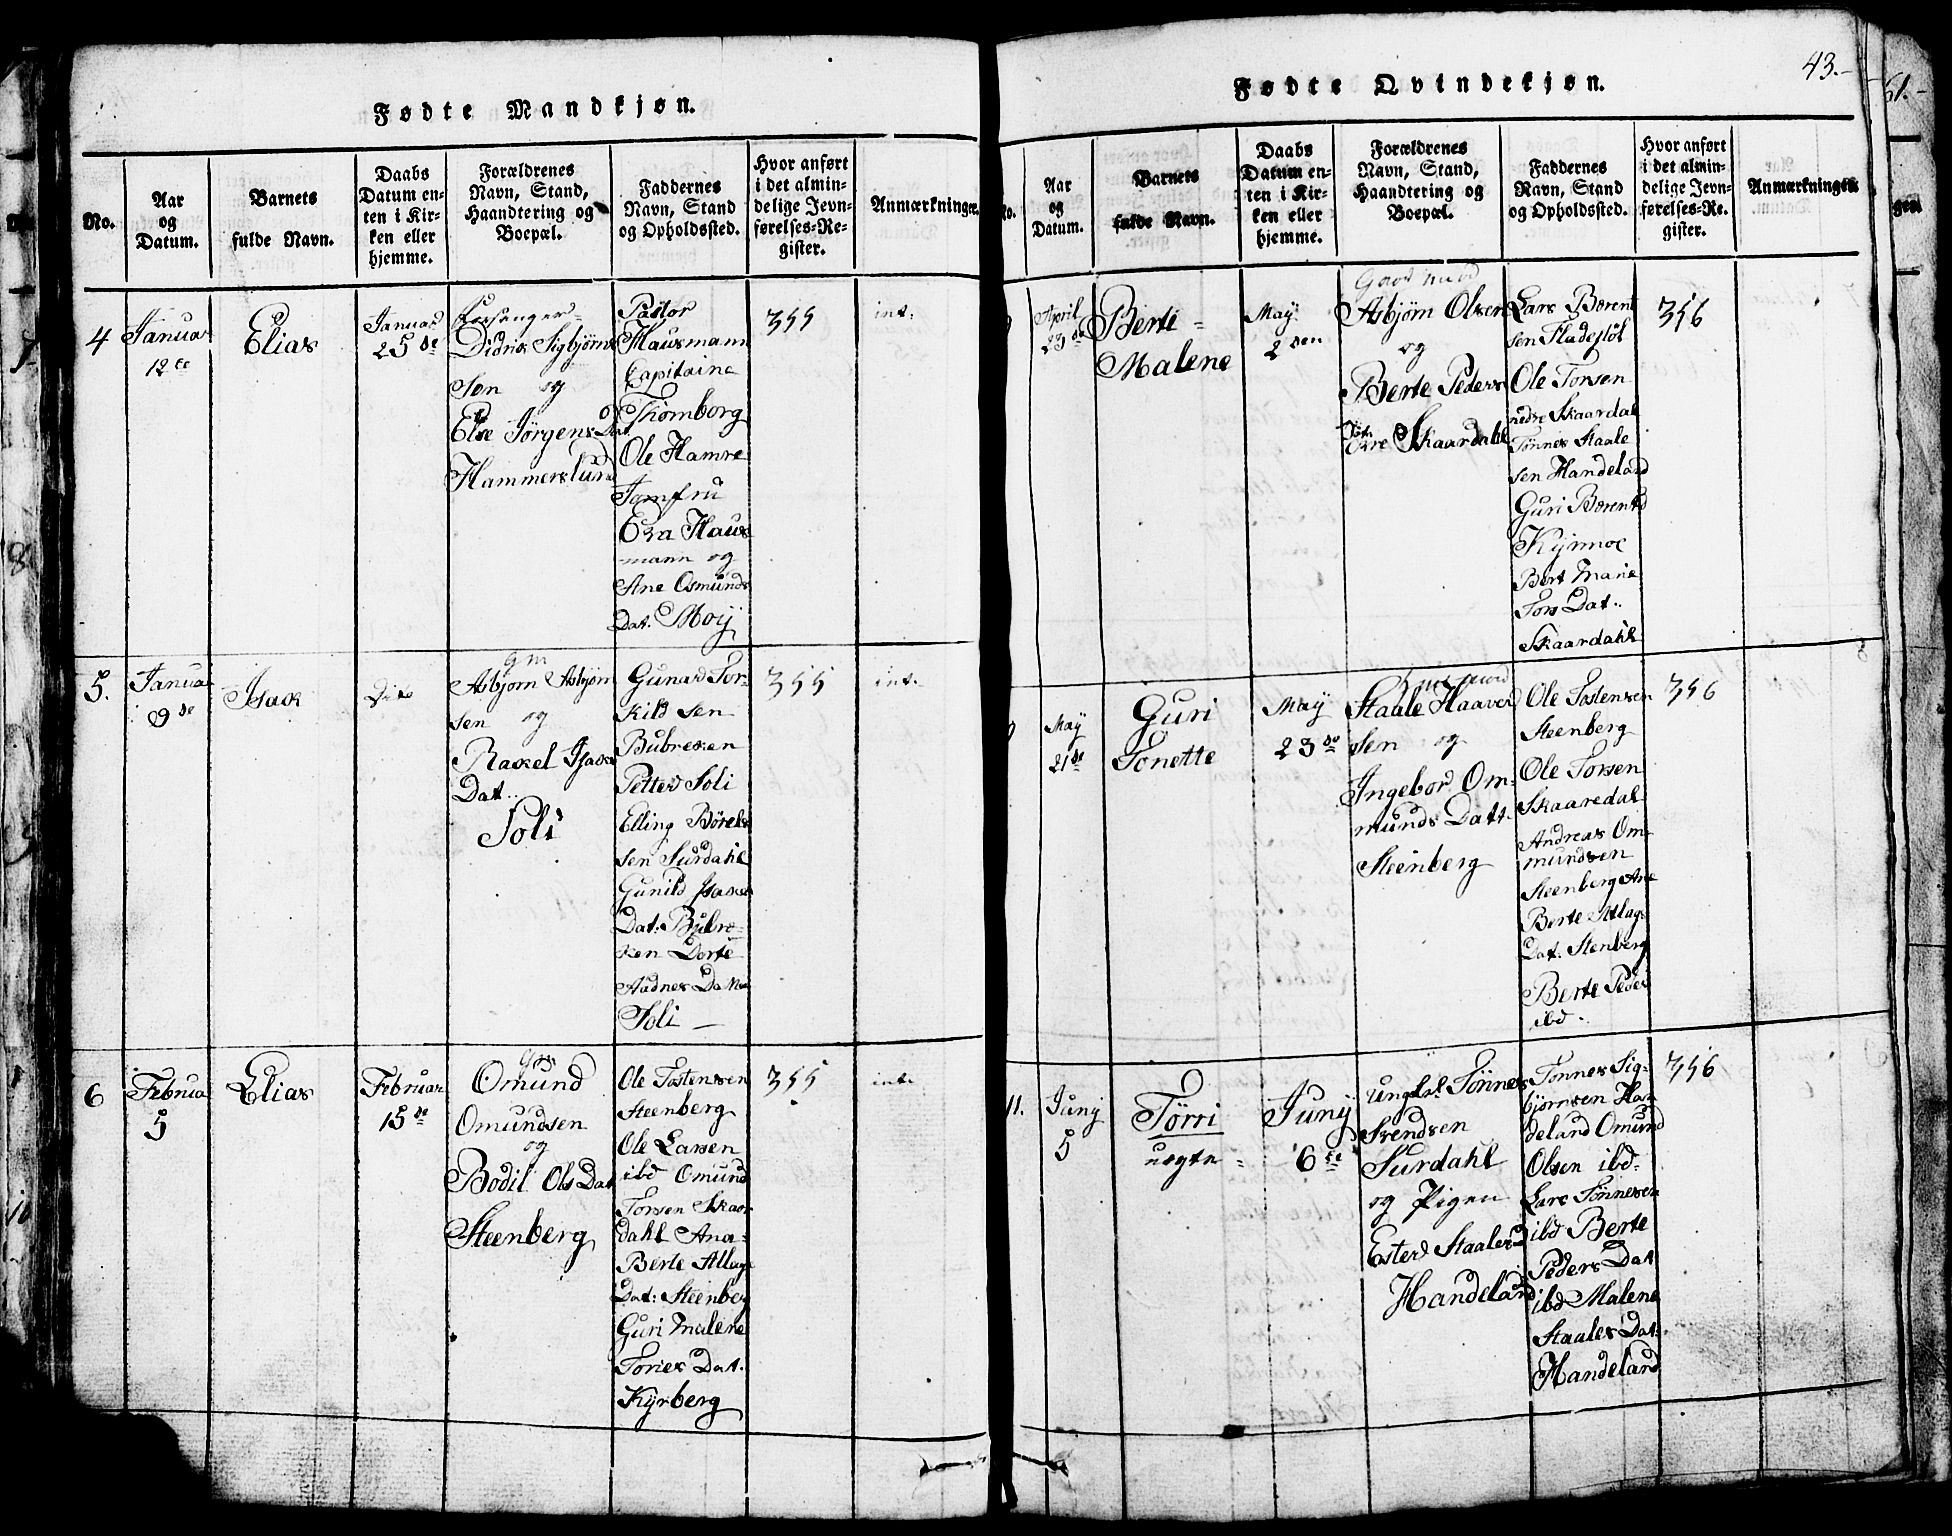 Fødte Mandkjøn.
No.
Aar
og
Datum.
Barnets
fulde Navn.
Daabs
Datum en-
ten i Kir-
ken eller
hjemme.
Forældrenes
Navn, Stand,
Haandtering og
Boepæl.
Faddernes
Navn, Stand
og Opholdssted.
Hvor anført
i det almin-
delige Jevn-
førelses-Re-
gister.
Anmærkninger.
4
Januar
12te
Elias
Januar
25de
Forsanger
Didrik Sigbjørns
Søn og
Else Jørgens Dat
Hammerslund
Pastor
Hausmann
Capitaine
Thomborg
Ole Hamre
Jomfru
Eva Haus
mann og
Ane Osmunds
Dat. Moij
355
int.
5.
Januar
9de
Isak
Dito
Gm
Asbjørn Asbjørn
sen og
Rakel Isaks
Dat..
Soli
Gunar Tor-
kild sen
Bubresken
Petter Soli
Elling Børels
sen Surdahl
Gunild Isaks
Dat: Bubre-
ken Dorte
Aadnes Datter
Soli —
355
int.
6
Februar
5
Elias
Februar
15de
Omund
Omundsen
og
Bodil Ols Dat
Steenberg
Ole Tostensen
Steenberg
Ole Larsen
ibd Omund
Torsen Skaar
dahl Ana-
Berte Atlags
Dat: Steenberg
Guri Malene
Tories Dat.
Kyrberg
355
int.
43.-
Fødte Qvindekjøn.
Aar
og
Datum.
Barnets
fulde Navn.
Daabs
Datum en-
ten i Kir-
ken eller
hjemme.
Forældrenes
Navn, Stand,
Haandtering og
Boepæl.
Faddernes
Navn, Stand
og Opholdssted.
Hvor anført
i det almin-
delige Jevn-
førelses-Re-
gister.
Anmærkninger.
April
23de
Berte-
Malene
May
2den
Gaardmand
Asbjørn Olsen
og
Berte Peders
Øvre Skaardahl
Lars Børent
sen Fladesløt
Ole Torsen
nedre Skaardal
Tønnes Staale
sen Handeland
Guri Børents
Kyrmoe
Bert Marie
Tors Dat..
Skaardahl
356
May
21de
Guri
Tonette
May
23de
Staale Haaver
sen og
Ingebor Om-
munds Datt.
Steenberg
Ole Tostensen
Steenberg
Ole Torsen
Skaaredal
Andreas Om-
mundsen
Steenberg Ane
Berte Atlags
Dat. Stenberg
Berte Peder
ibd.
356
11.
Junij
5
Tørri
uægte
Junij
6te
Ungkl. Tønnes
Svendsen
Surdahl
og Pigen
Ester Staalesd
Handeland
Tønnes Sig-
bjørnsen Han
deland Omund
Olsen ibd-
Lars Tønnesen
ibd Berte
Peders Dat
ibd Malene
Staales Dat.
Handeland
356